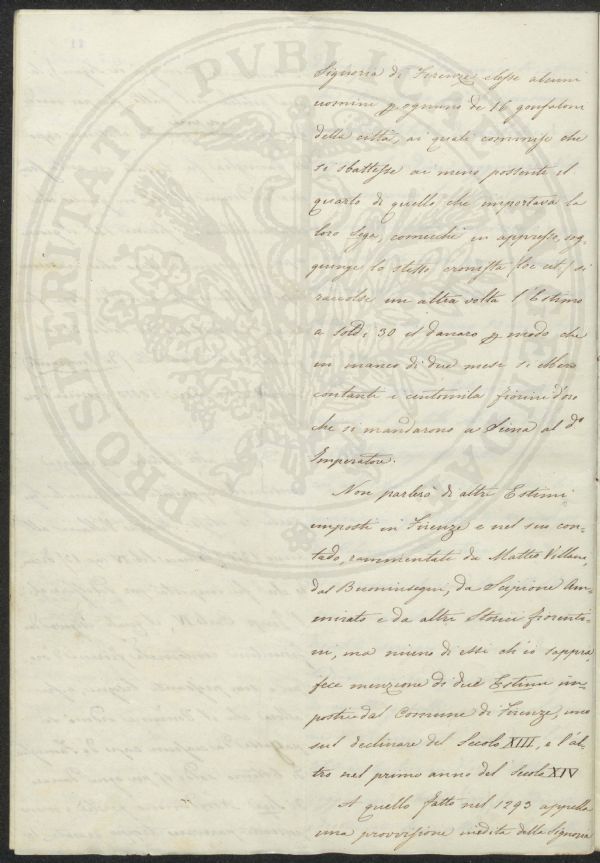 PROSPERITATI PVBLICAE
Signoria di Firenze elesse alcuni
uomini p ognuno de 16 gonfaloni
della città, ai quali commise che
si sbattesse ai meno possenti il
quarto di quello che importava la
loro Sega, comecchè in appresso, sog-
giunge lo stesso cronista (loc. cit.) si
raccolse un altra volta l'Estimo
a soldi 30 il danaro p modo che
in manco di due mesi si ebbero
contanti e centomila fiorini d'oro
che si mandarono a Siena al do
Imperatore.
Non parlerò di altri Estimi
imposti in Firenze e nel suo con-
tado, rammentati da Matteo Villani,
dal Buoninsegni, da Scipione Am-
mirato e da altri Storici fiorenti-
ni, ma niuno di essi ch'io sappia,
fece menzione di due Estimi im-
posti dal Comune di Firenze, uno
sul declinare del Secolo XIII, e l'al-
tro nel primo anno del Secolo XIV
A quello fatto nel 1293 appella
una provvisione inedita della Signoria